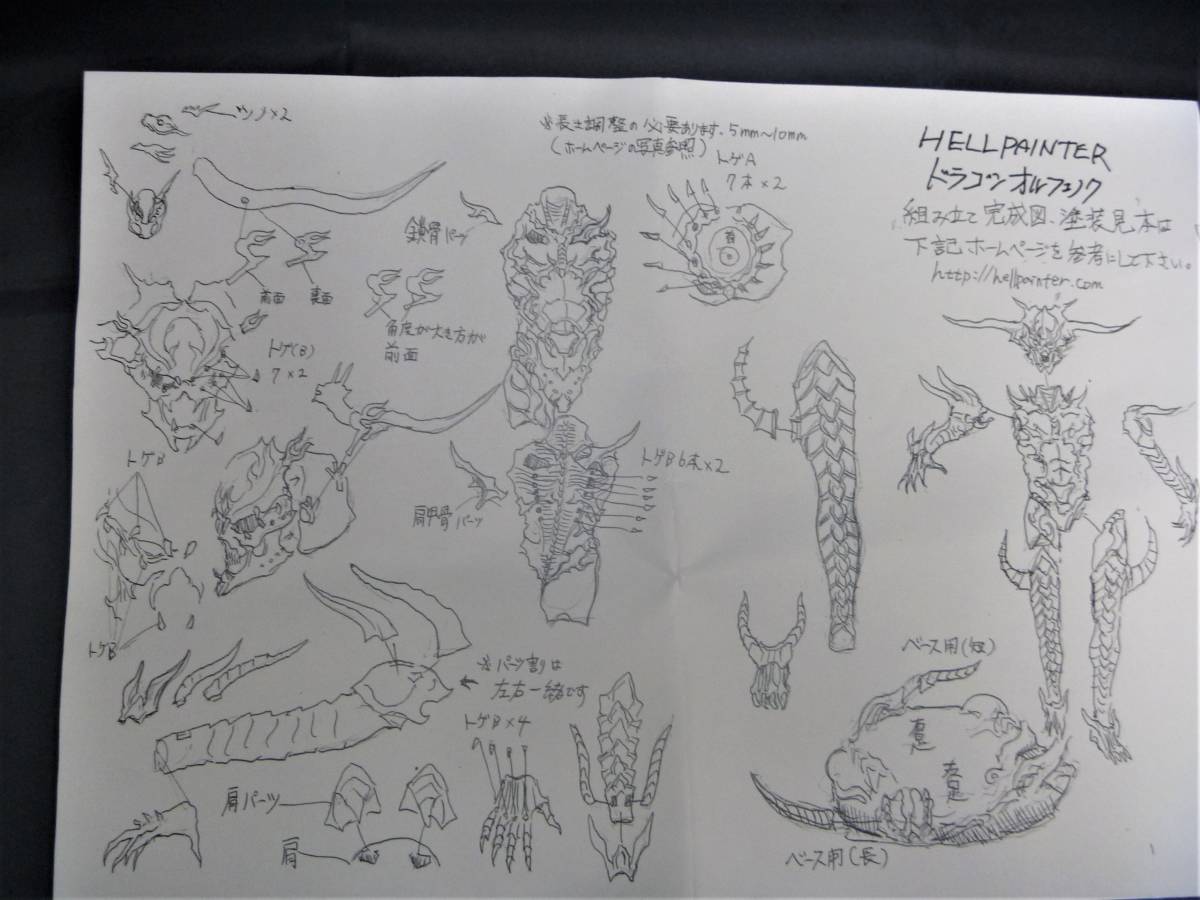 ツノ×2
※長さ調整の必要あります。5mm~10mm
(ホームページの写真参照)
HELLPAINTER
ドラゴンオルフェノク
組み立て完成図、塗装見本は
下記ホームページを参考にして下さい。
http://hellpainter.com
トゲA
7本×2
鎖骨パーツ
前面
裏面
角度が大き方が
前面
トゲ(B)
7×2
トゲB
トゲB 6本×2
肩甲骨パーツ
トゲB
※パーツ割りは
左右一緒です
トゲB×4
肩パーツ
肩
ベース用(短)
ベース用(長)